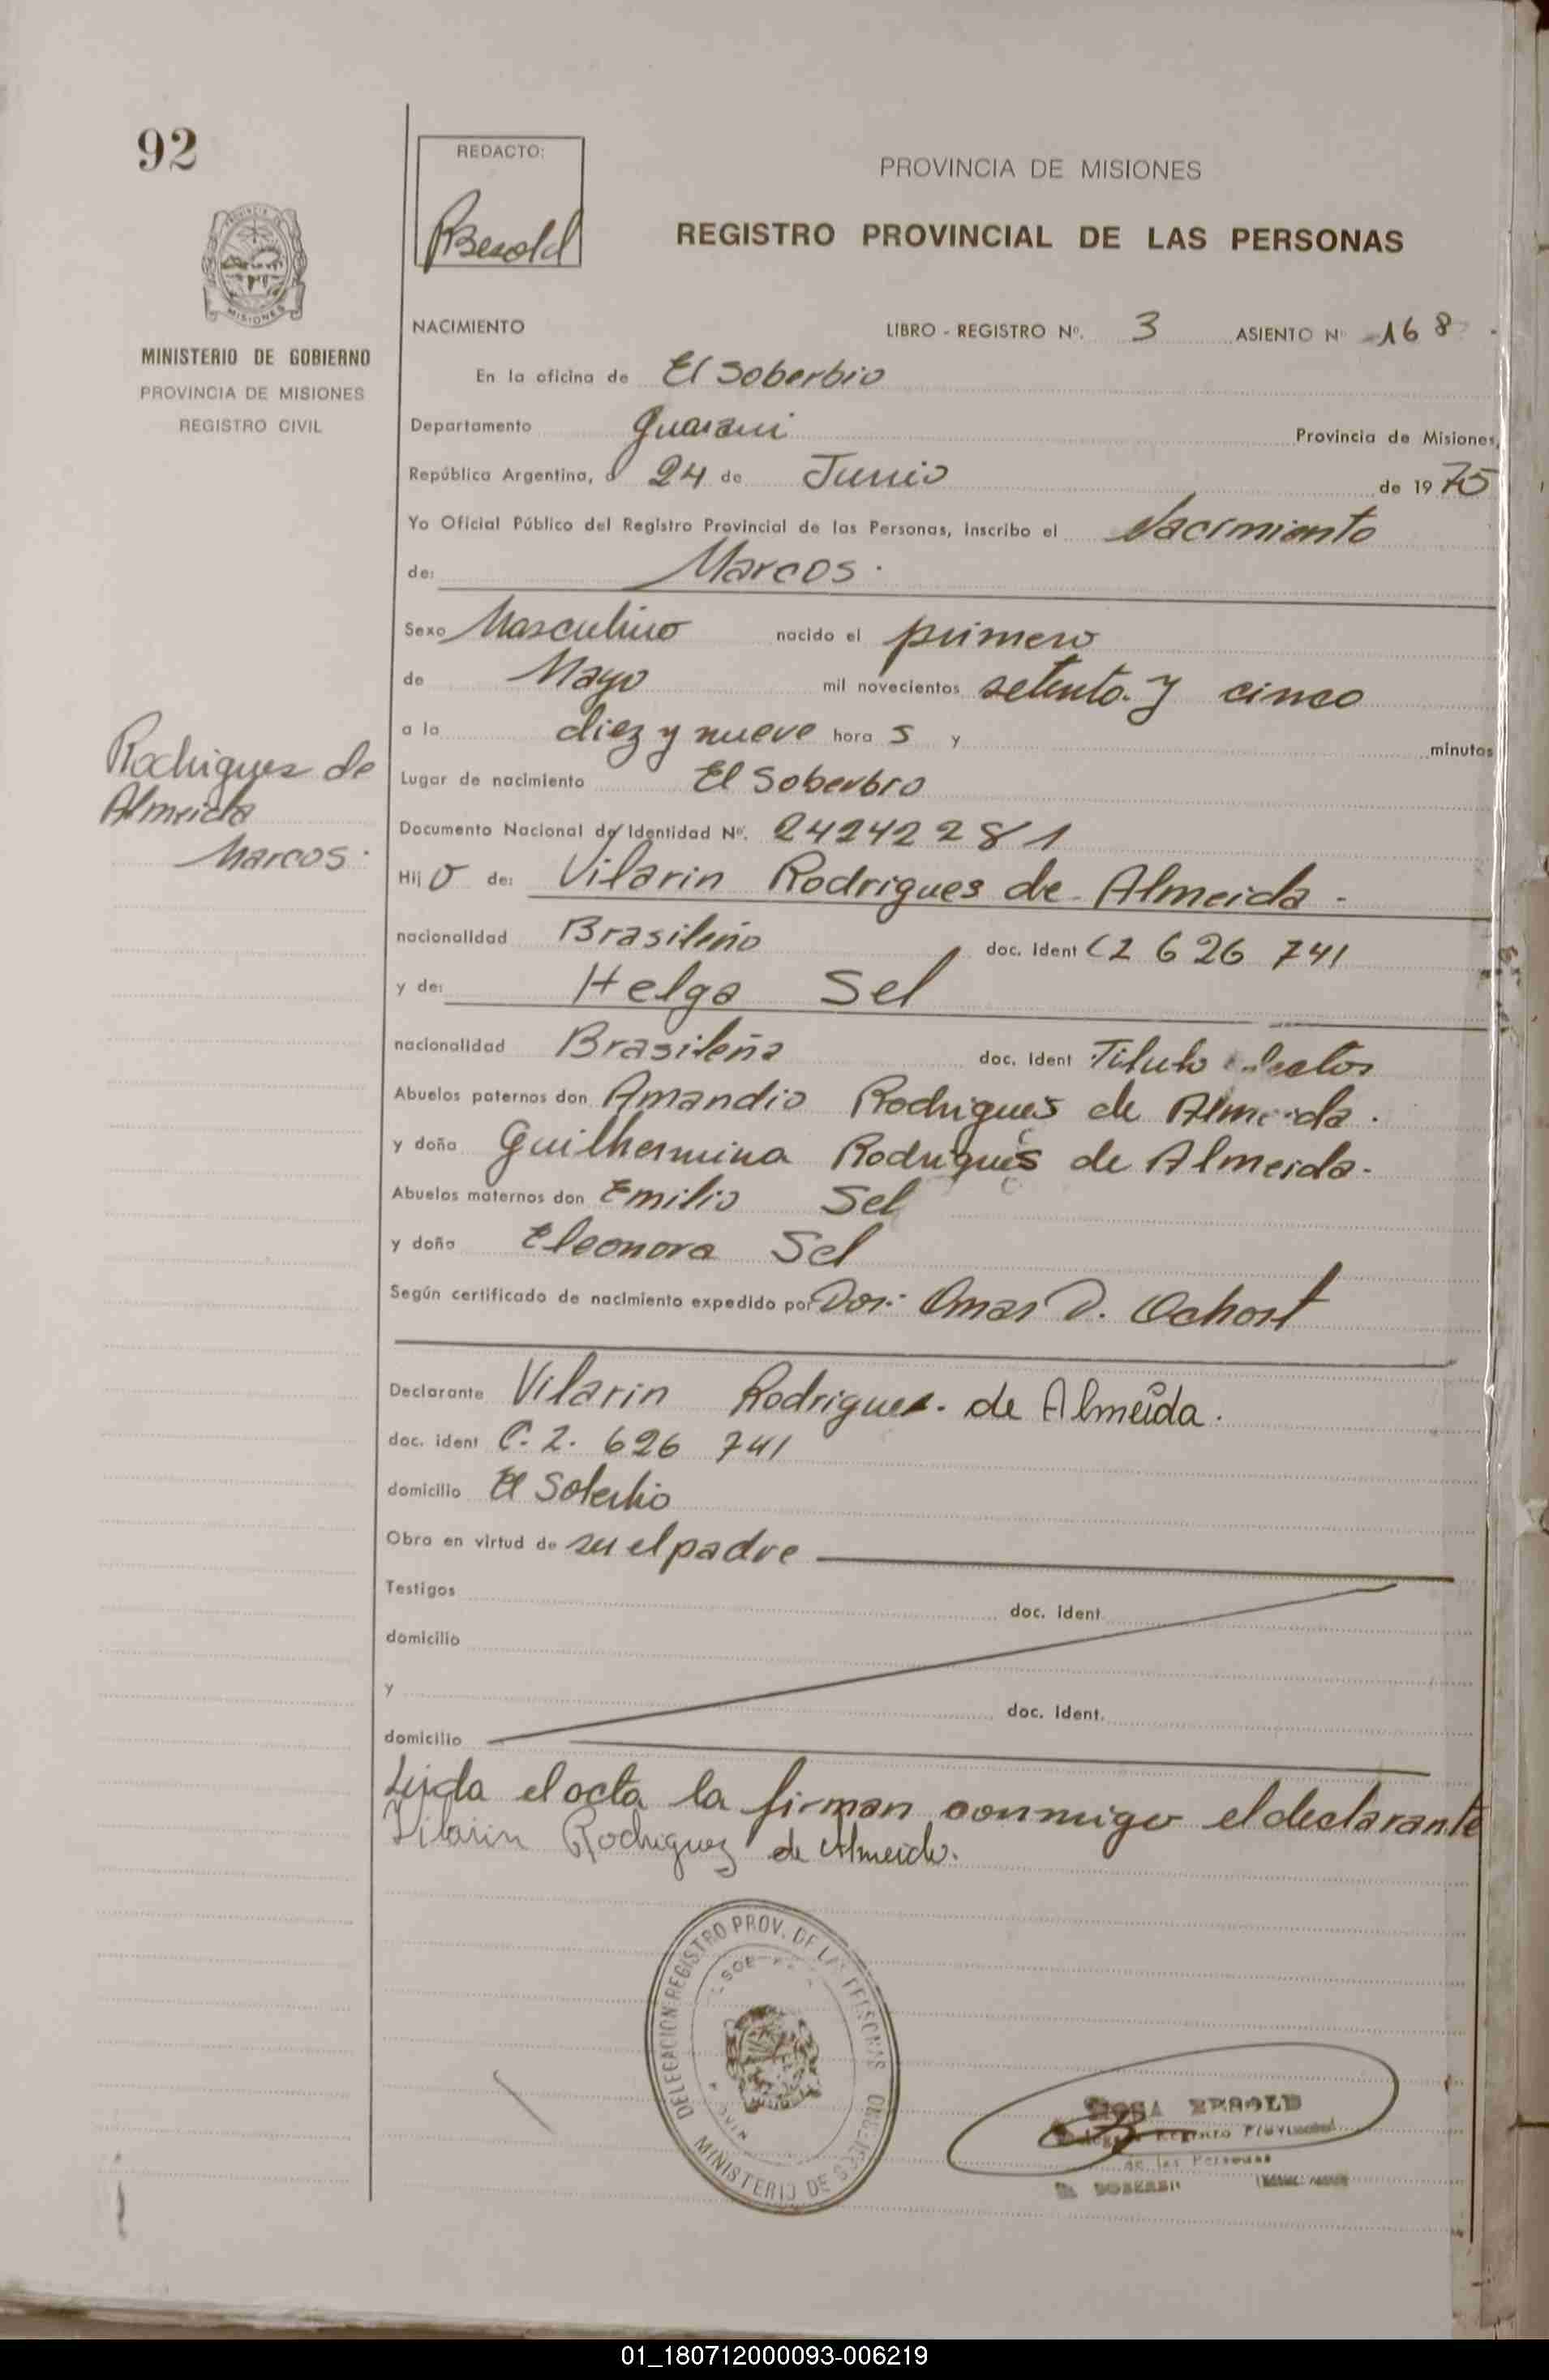 92
REDACTO:
Besold
PROVINCIA DE MISIONES
REGISTRO PROVINCIAL DE LAS PERSONAS
MISIONES
MINISTERIO DE GOBIERNO
PROVINCIA DE MISIONES
REGISTRO CIVIL
NACIMIENTO LIBRO - REGISTRO Nº. 3 ASIENTO Nº 168
En la oficina de El Soberbio
Departamento Guarani Provincia de Misiones,
República Argentina, a 24 de Junio de 1975
Yo Oficial Público del Registro Provincial de las Personas, inscribo el Nacimiento
de: Marcos.
Sexo Masculino nacido el primero
de Mayo mil novecientos setenta y cinco
a la diez y nueve hora s y minutos
Rodrigues de
Almeida
Marcos.
Lugar de nacimiento El Soberbio
Documento Nacional de Identidad Nº. 24242281
Hij o de: Vilarin Rodrigues de Almeida -
nacionalidad Brasileño doc. ident C2 626 741
y de: Helga Sel
nacionalidad Brasileña doc. ident Titulo
Abuelos paternos don Amandio Rodrigues de Almeida.
y doña Guilhermina Rodrigues de Almeida-
Abuelos maternos don Emilio Sel
y doña Eleonora Sel
Según certificado de nacimiento expedido por Dor: Omar D.
Declarante Vilarin Rodrigues. de Almeida.
doc. ident C. 2. 626 741
domicilio El Soberbio
Obra en virtud de su el padre
Testigos doc. ident.
domicilio
y doc. ident.
domicilio
Leida el acta la firman conmigo el declarante
Vilarin Rodriguez de Almeida.
DELEGACION REGISTRO PROV. DE LAS PERSONAS
MINISTERIO DE
de las Personas
01_180712000093-006219